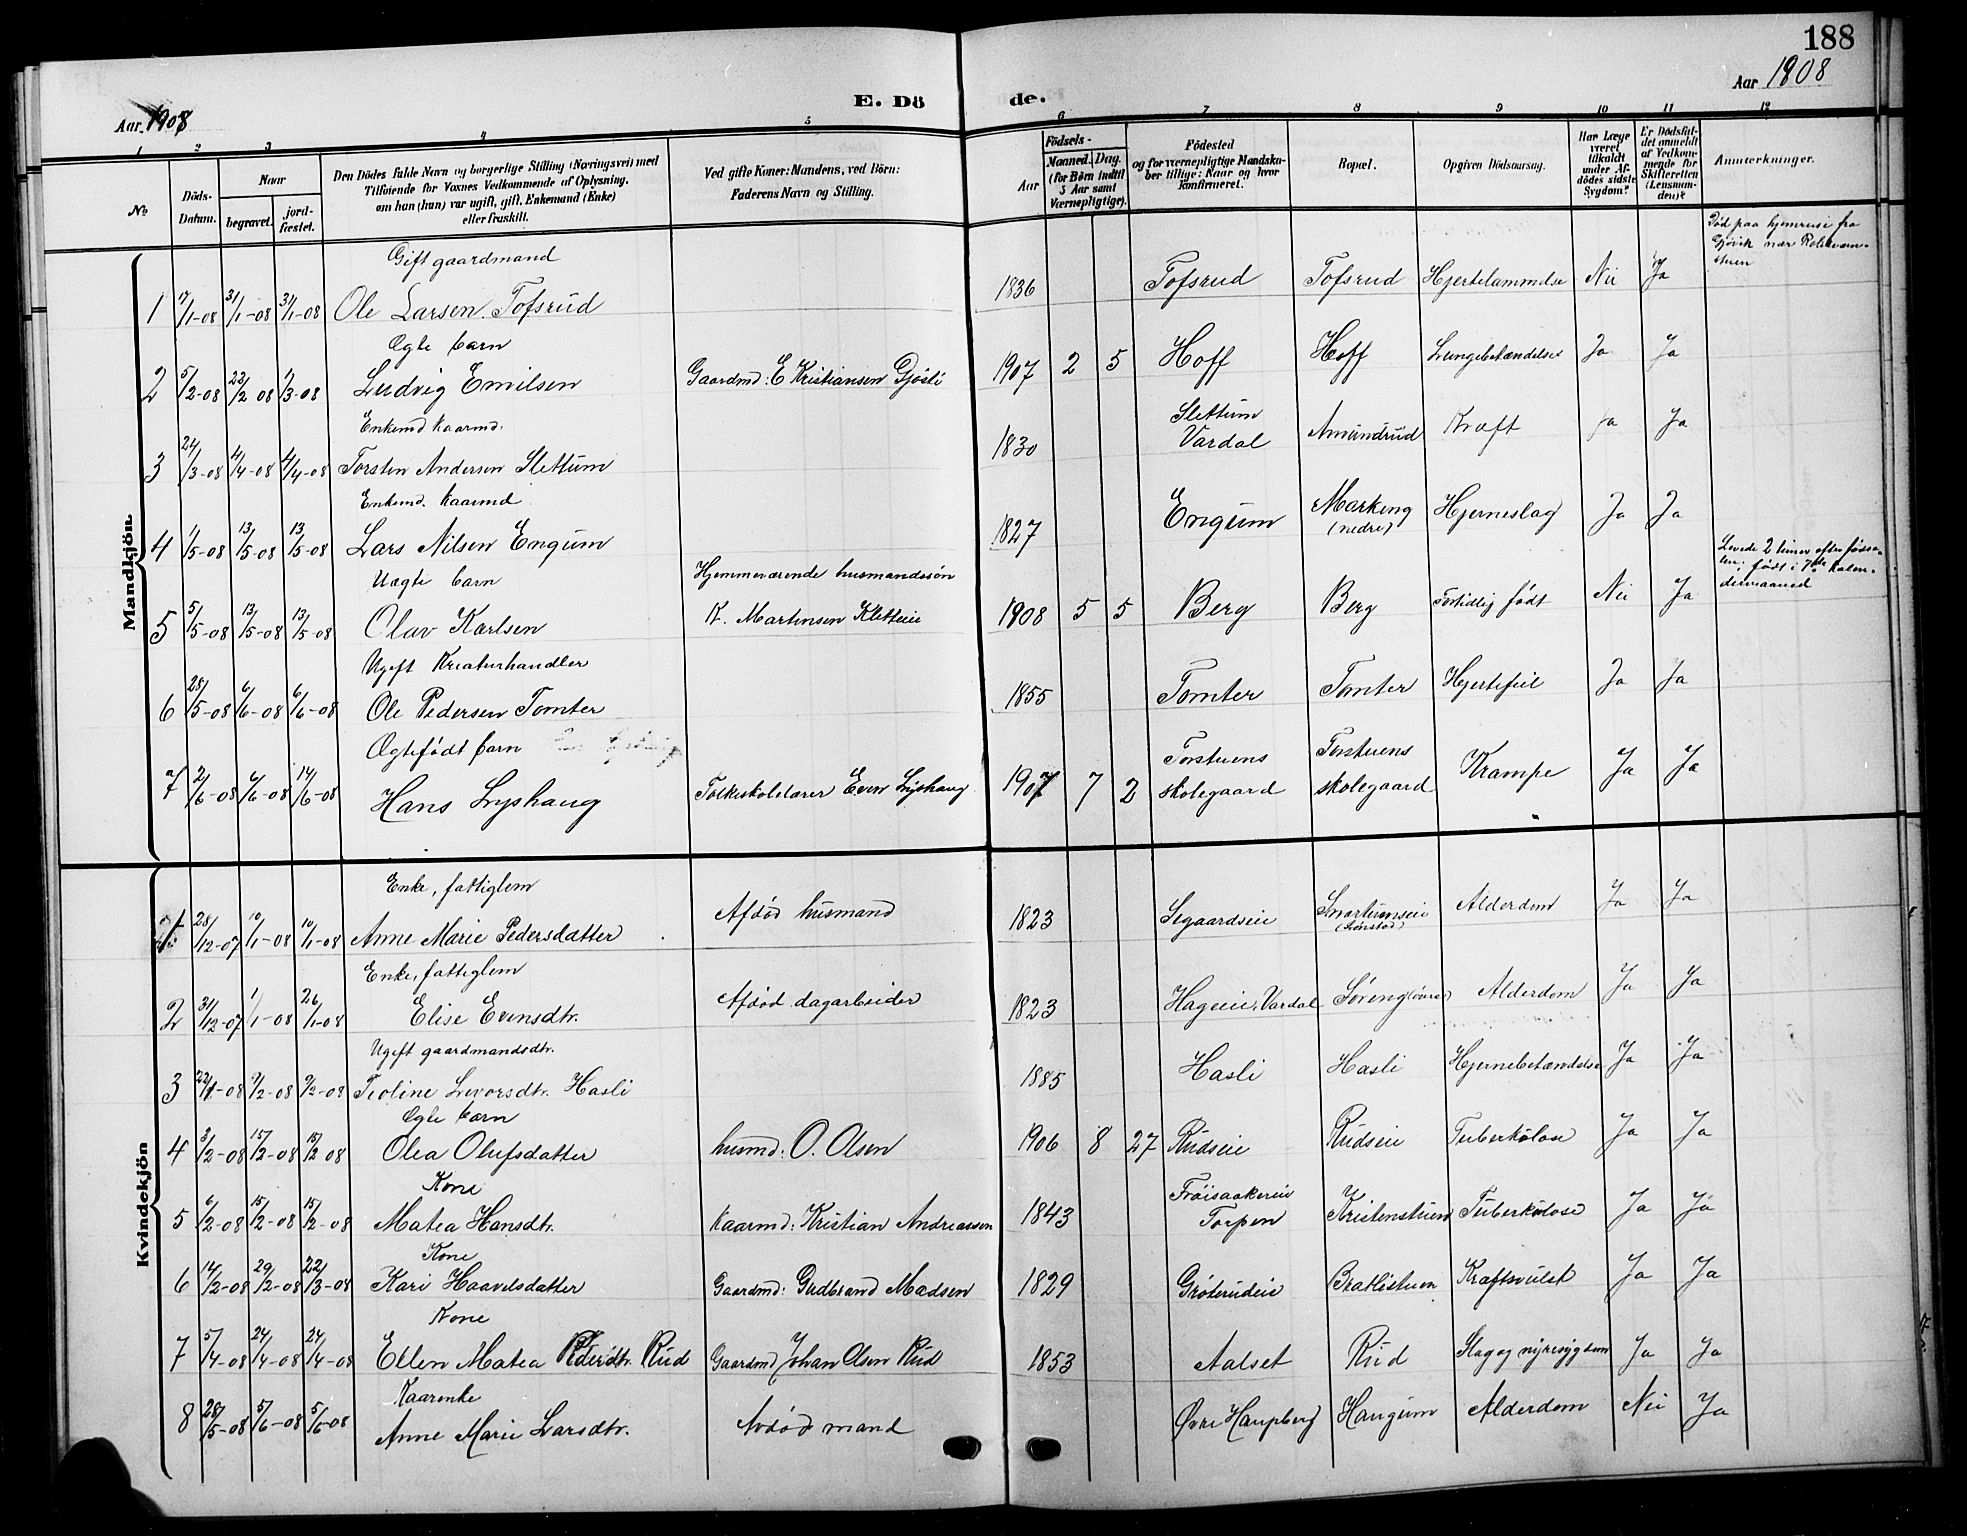 188
Aar 1908
Aar 1908
E. Dö de.
1 2 3 4 5 6 7 8 9 10 11 12
No
Döds-Datum.
Naar
begravet.
jord-fæstet.
Den Dödes fulde Navn og borgerlige Stilling (Næringsvei) med
Tilföiende for Voxnes Vedkommende af Oplysning,
om han (hun) var ugift, gift, Enkemand (Enke)
eller fraskilt.
Ved gifte Koner: Mandens, ved Börn:
Faderens Navn og Stilling.
Födsels-
Aar
Maaned. Dag.
(for Börn indtil
5 Aar samt
Værnepligtige).
Födested
og for værnepligtige Mandska-
ber tillige: Naar og hvor
konfirmeret.
Bopæl.
Opgiven Dödsaarsag.
Har Læge
været
tilkaldt
under Af-
dödes sidste
Sygdom?
Er Dödsfal-
det anmeldt
af Vedkom-
mende for
Skifteretten
(Lensman-
den)?
Anmærkninger.
Mandkjön.
Gift gaardmand
1 /1-08 31/1-08 31/1-08 Ole Larsen Tofsrud 1836 Tofsrud Tofsrud Hjertelammelse Nei Ja Död paa hjemreise fra
Gjövik nær
Ægte barn
2 5/2-08 22/2 08 1/3-08 Ludvig Emilsen Gaardmd: E Kristiansen Gjösli 1907 2 5 Hoff Hoff Lungebetændelse Ja Ja
Enkemd kaarmd.
3 24/3-08 4/4-08 4/4-08 Torsten Andersen Slettum 1830 Slettum Vardal Amundrud Kræft Ja Ja
Enkemd. kaarmd
4 1/5-08 13/5-08 13/5-08 Lars Nilsen Engum 1827 Engum Markeng (nedre) Hjerneslag Ja Ja
Uægte barn
5 5/5-08 13/5-08 13/5-08 Olav Karlsen Hjemmeværende husmandssön
K. Martinsen Kletteie 1908 5 5 Berg Berg Fortidlig födt Nei Ja Levede 2 timer efter födse-
len, födt i 7de kalen-
dermaaned
Ugift Kreaturhandler
6 28/5-08 6/6-08 6/6-08 Ole Pedersen Tomter 1855 Tomter Tomter Hjertefeil Ja Ja
Ægtefödt barn
7 2/6-08 6/6-08 14/6-08 Hans Lyshaug Folkeskolelærer Even Lyshaug 1907 7 2 Torstuens skolegaard Torstuens skolegaard Krampe Ja Ja
Kvindekjön
Enke, fattiglem
1 28/12-07 10/1-08 10/1-08 Anne Marie Pedersdatter Afdød husmand 1823 Segaardseie Snartumseie (Sönstad) Alderdom Ja Ja
Enke, fattiglem
2 31/12-07 1/1-08 26/1-08 Elise Evensdtr. Afdød dagarbeider 1823 Hageeie, Vardal Söreng Alderdom Ja Ja
Ugift gaardmandsdtr.
3 22/1-08 9/2-08 9/2-08 Teoline Levorsdtr. Hasli 1885 Hasli Hasli Hjernebetændelse Ja Ja
Ægte barn
4 3/2-08 15/2-08 15/2 08 Olea Olufsdatter husmd: O. Olsen 1906 8 27 Rudseie Rudseie Tuberkulose Ja Ja
Kone
5 6/2-08 15/2-08 15/2-08 Matea Hansdtr. kaarmd: Kristian Andreassen 1843 Fröisaakereie Torpen Kristenstuen Tuberkulose Ja Ja
Kone
6 14/2-08 29/2-08 22/3-08 Kari Haavelsdatter Gaardmd: Gudbrand Madsen 1829 Gröterudeie Bratlistuen Kræftsvulst Ja Ja
Kone
7 5/4-08 24/4-08 24/4-08 Ellen Matea Pedersdtr. Rud Gaardmd Johan Olsen Rud 1853 Aalset Rud Slag og nyresygdom Ja Ja
Kaarenke
8 28/5-08 5/6-08 5/6-08 Anne Marie Larsdtr. Avdød mand Øvre Haugum Alderdom Nei Ja